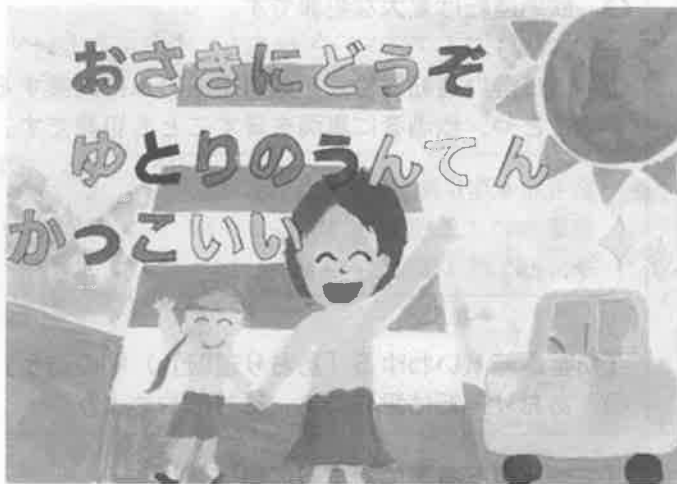 おさきにどうぞ
ゆとりのうんてん
かっこいい